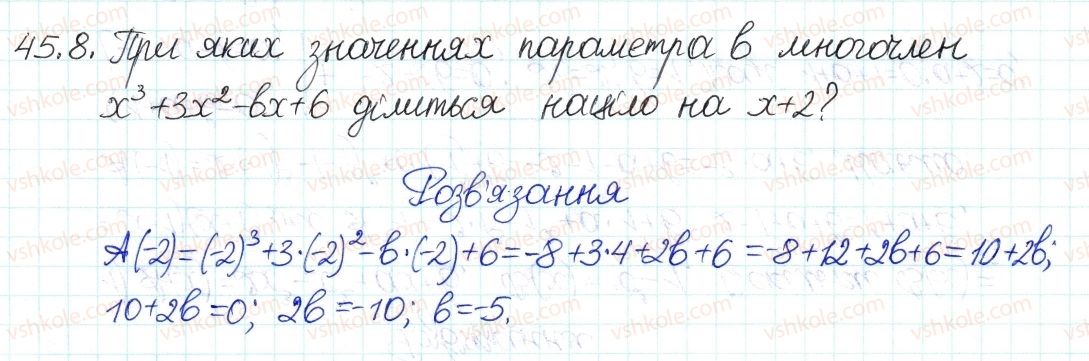 45.8. При яких значеннях параметра b многочлен
x³+3x²-bx+6 ділиться націло на x+2?
Розв'язання
A(-2)=(-2)³+3·(-2)²-b·(-2)+6=-8+3·4+2b+6=-8+12+2b+6=10+2b;
10+2b=0; 2b=-10; b=-5.